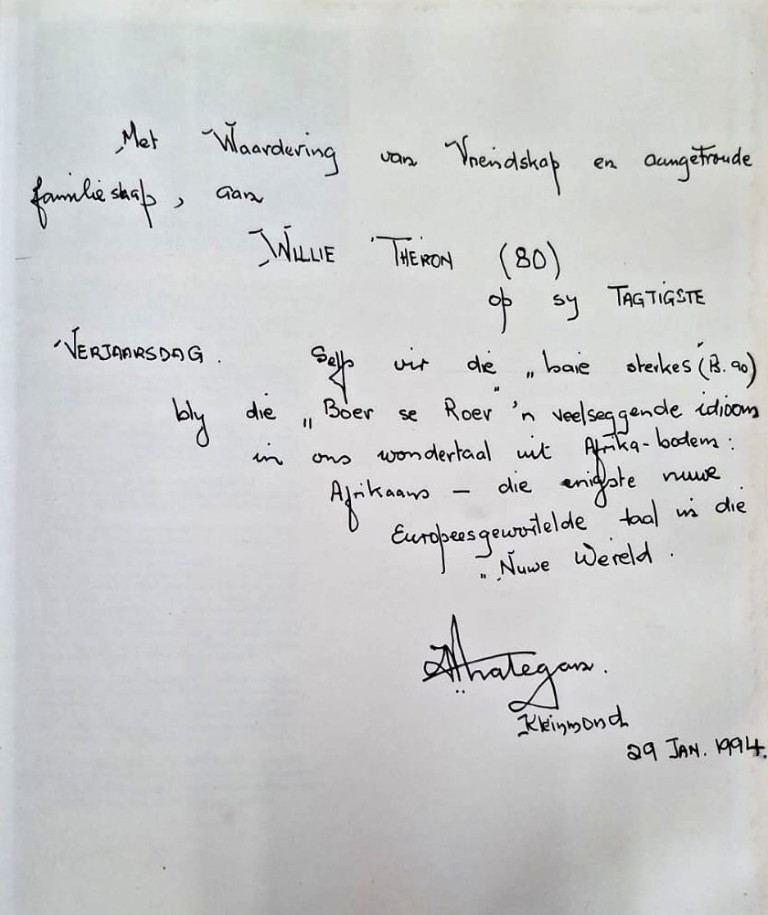 Met Waardering van Vriendskap en aangetroude
familieskap, aan
WILLIE THERON (80)
op sy TAGTIGSTE
VERJAARSDAG. Self vir die „baie sterkes" (B. 90)
bly die „Boer se Roer" 'n veelseggende idioom
in ons wondertaal uit Afrika-bodem:
Afrikaans — die enigste nuwe
Europeesgewortelde taal in die
„Nuwe Wêreld.
Kleinmond
29 JAN. 1994.